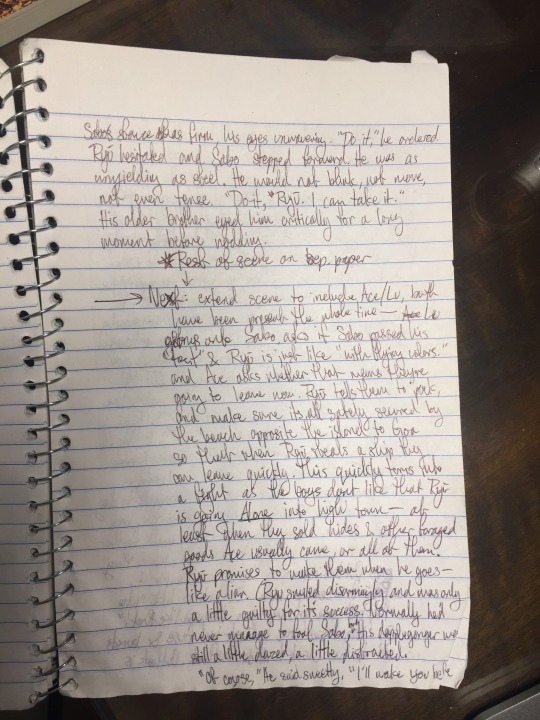 Sabo's stance was firm his eyes unwavering. "Do it," he ordered
Ryū hesitated and Sabo stepped forward. He was as
unyielding as steel. He would not blank, not move,
not even tense. "Do it, Ryū. I can take it."
His older brother eyed him critically for a long
moment before nodding.
* Rest of scene on sep. paper
↓
→ Next: extend scene to include Ace/Lu, both
have been present the whole time—
onto Sabo asks if Sabo passed his
"test" & Ryū is just like "with flying colors."
and Ace asks whether that means they're
going to leave now. Ryū tells them to pack,
and make sure its all safely secured by
the beach opposite the island to Goa
so that when Ryū steals a ship they
can leave quickly. This quickly turns into
a fight as the boys don't like that Ryū
is going Alone into high town— at
least when they sold hides & other foraged
goods Ace usually came, or all of them.
Ryū promises to wake them when he goes—
like a liar. (Ryū smiled disarmingly and was only
a little guilty for its success. Normally he'd
never manage to fool Sabo, but his doppleganger was
still a little dazed a little distracted.
"Of course," he said sweetly, "I'll wake you before